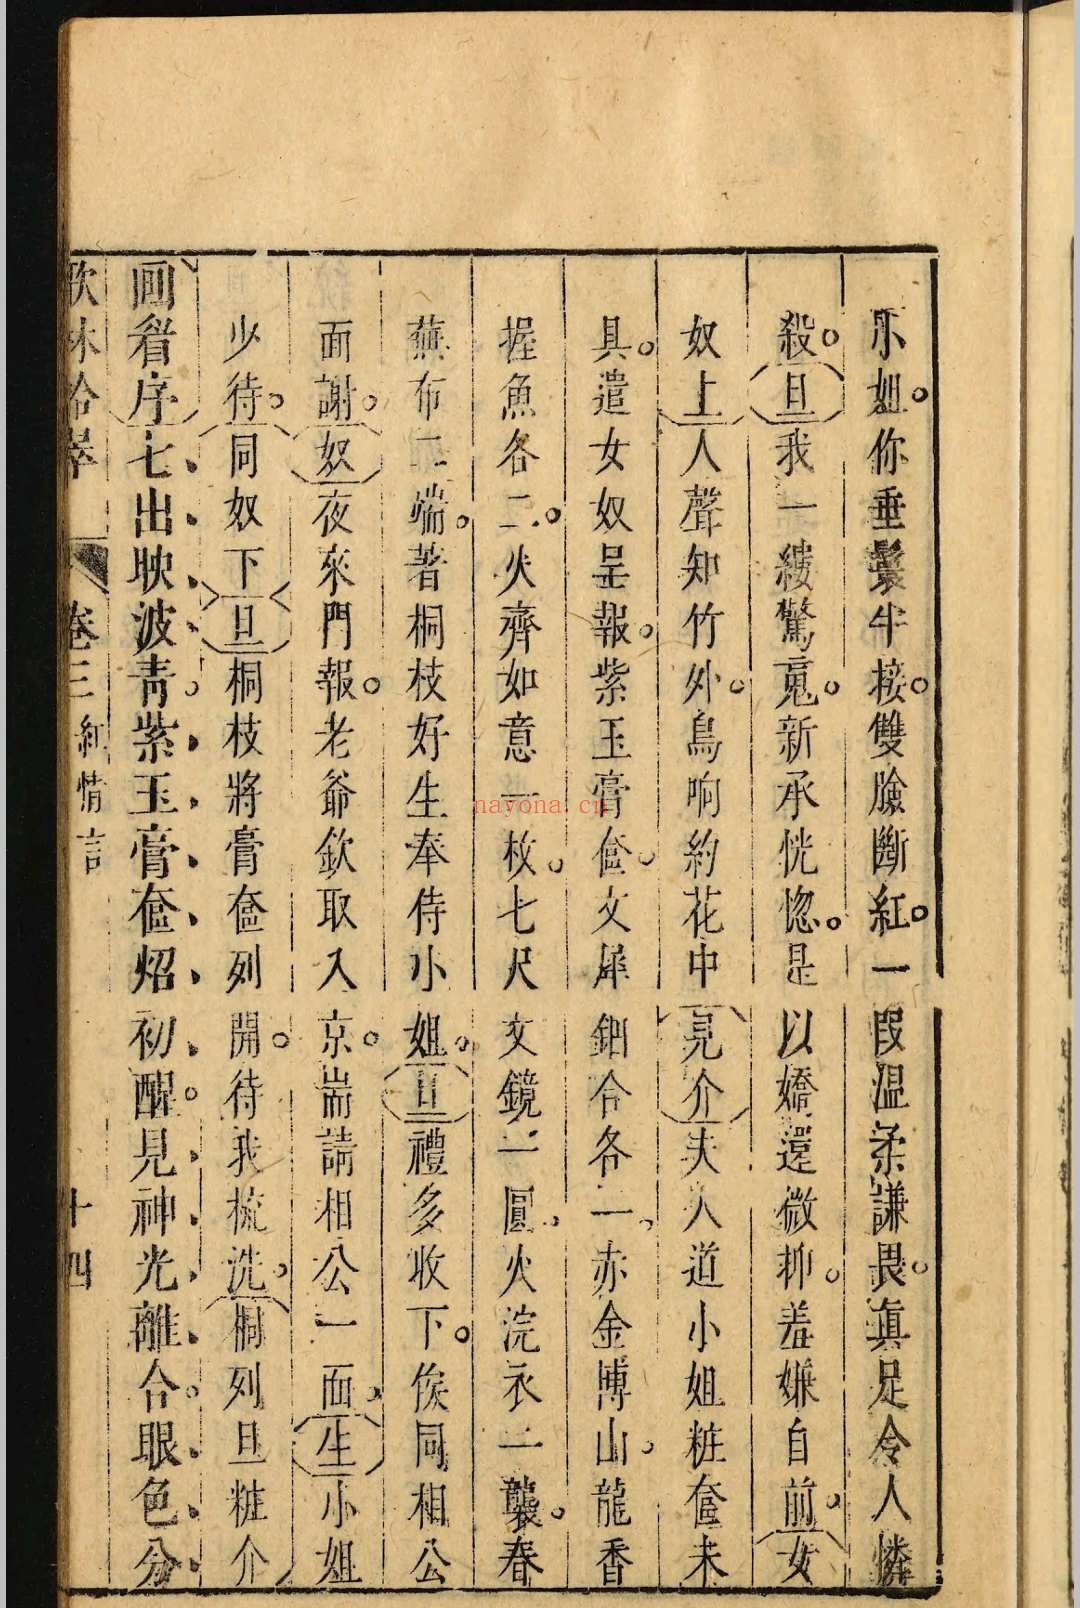 小姐。你垂鬟半接。雙臉斷紅。一叚温柔謙畏。真足令人憐
殺。旦我一縷驚䰟。新承恍惚。是以嬌還微抑。羞嫌自前。女
奴上人聲知竹外。鳥响約花中見介夫人道小姐粧奩未
具。遣女奴呈報。紫玉膏奩。文犀鈿合各一。赤金博山。龍香
握魚各二。火齊如意一枚。七尺文鏡一圓。火浣衣一襲。春
蕪布二端。著桐枝好生奉侍小姐。旦禮多收下。俟同相公
面謝。奴夜來門報。老爺欽取入京。耑請相公一面。生小姐
少待。同奴下旦桐枝將膏奩列開。待我梳洗。桐列旦粧介
画眉序七出映波青。紫玉膏奩炤初醒。見神光離合。眼色分
歌林拾翠 卷三 紅情言 十四
nayona.cn